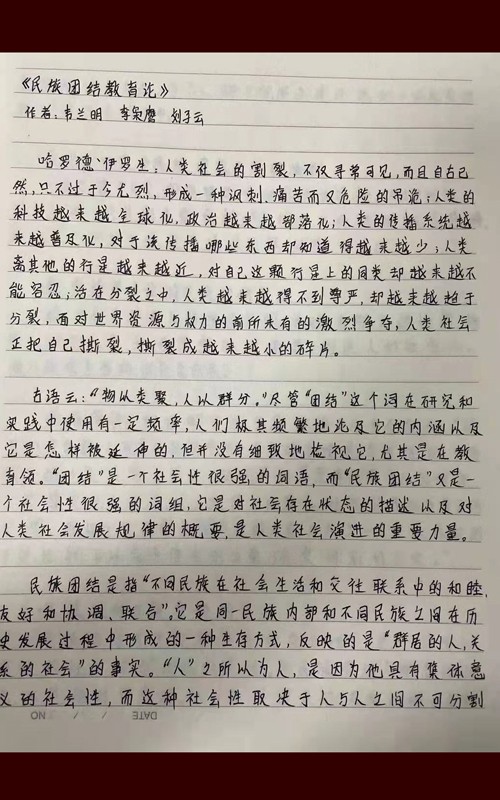 《民族团结教育论》
作者:韦兰明 李枭鹰 刘子云
哈罗德·伊罗生:人类社会的割裂,不仅寻常可见,而且自古已
然,只不过于今尤烈,形成一种讽刺、痛苦而又危险的吊诡:人类的
科技越来越全球化,政治越来越部落化;人类的传播系统越
来越普及化,对于该传播哪些东西却知道得越来越少;人类
离其他的行星越来越近,对自己这颗行星上的同类却越来越不
能容忍;活在分裂之中,人类越来越得不到尊严,却越来越趋于
分裂,面对世界资源与权力的前所未有的激烈争夺,人类社会
正把自己撕裂,撕裂成越来越小的碎片。
古语云:“物以类聚,人以群分。”尽管“团结”这个词在研究和
实践中使用有一定频率,人们极其频繁地论及它的内涵以及
它是怎样被延伸的,但并没有细致地检视它,尤其是在教
育领。“团结”是一个社会性很强的词语,而“民族团结”又是一
个社会性很强的词组,它是对社会存在状态的描述以及对
人类社会发展规律的概要,是人类社会演进的重要力量。
民族团结是指“不同民族在社会生活和交往联系中的和睦、
友好和协调、联合”。它是同一民族内部和不同民族之间在历
史发展过程中形成的一种生存方式,反映的是“群居的人,关
系的社会”的事实。“人”之所以为人,是因为他具有集体意
义的社会性,而这种社会性取决于人与人之间不可分割
DATE / / NO